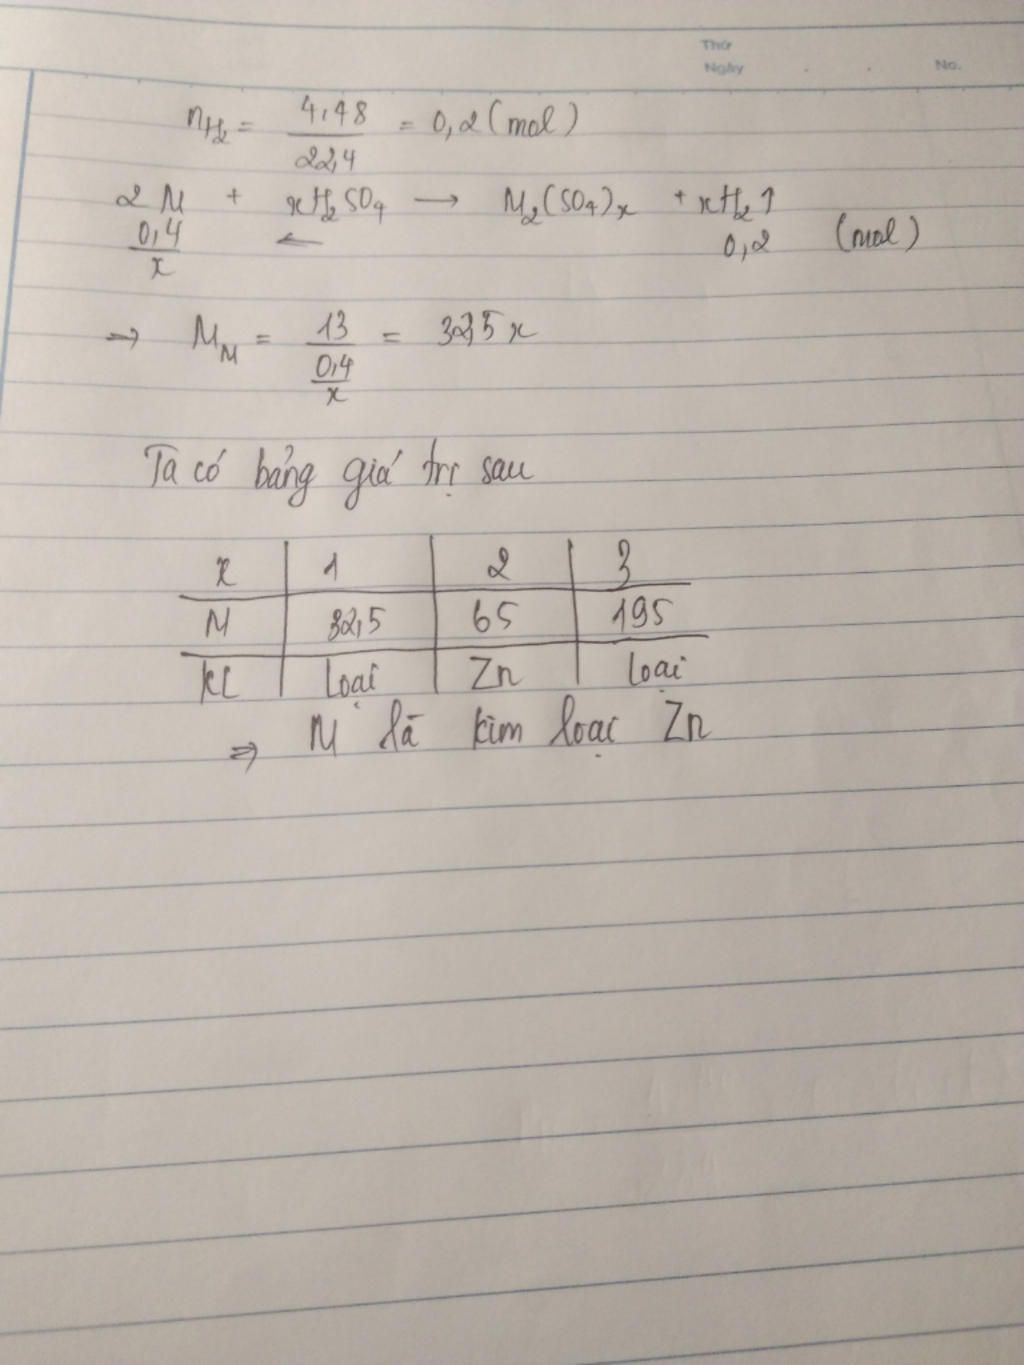 Thứ
Ngày No.
nH₂ = 4,48/22,4 = 0,2 (mol)
2M + xH₂SO₄ → M₂(SO₄)ₓ + xH₂↑
0,4/x ← 0,2 (mol)
⇒ M_M = 13/(0,4/x) = 32,5x
Ta có bảng giá trị sau
x 1 2 3
M 32,5 65 195
KL Loại Zn Loại
⇒ M là kim loại Zn